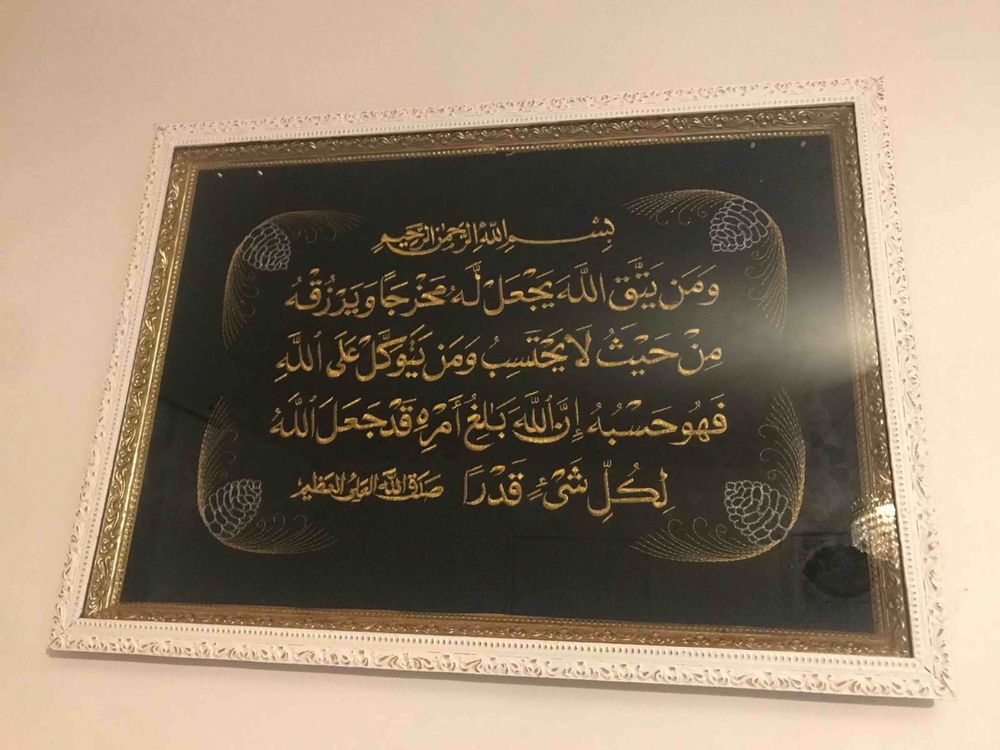 بِسْمِ اللَّهِ الرَّحْمٰنِ الرَّحِيمِ
وَمَن يَتَّقِ اللَّهَ يَجْعَل لَّهُ مَخْرَجًا وَيَرْزُقْهُ
مِنْ حَيْثُ لَا يَحْتَسِبُ وَمَن يَتَوَكَّلْ عَلَى ٱللَّهِ
فَهُوَ حَسْبُهُ إِنَّ ٱللَّهَ بَالِغُ أَمْرِهِ قَدْ جَعَلَ ٱللَّهُ
لِكُلِّ شَيْءٍ قَدْرًا صدق الله العلي العظيم